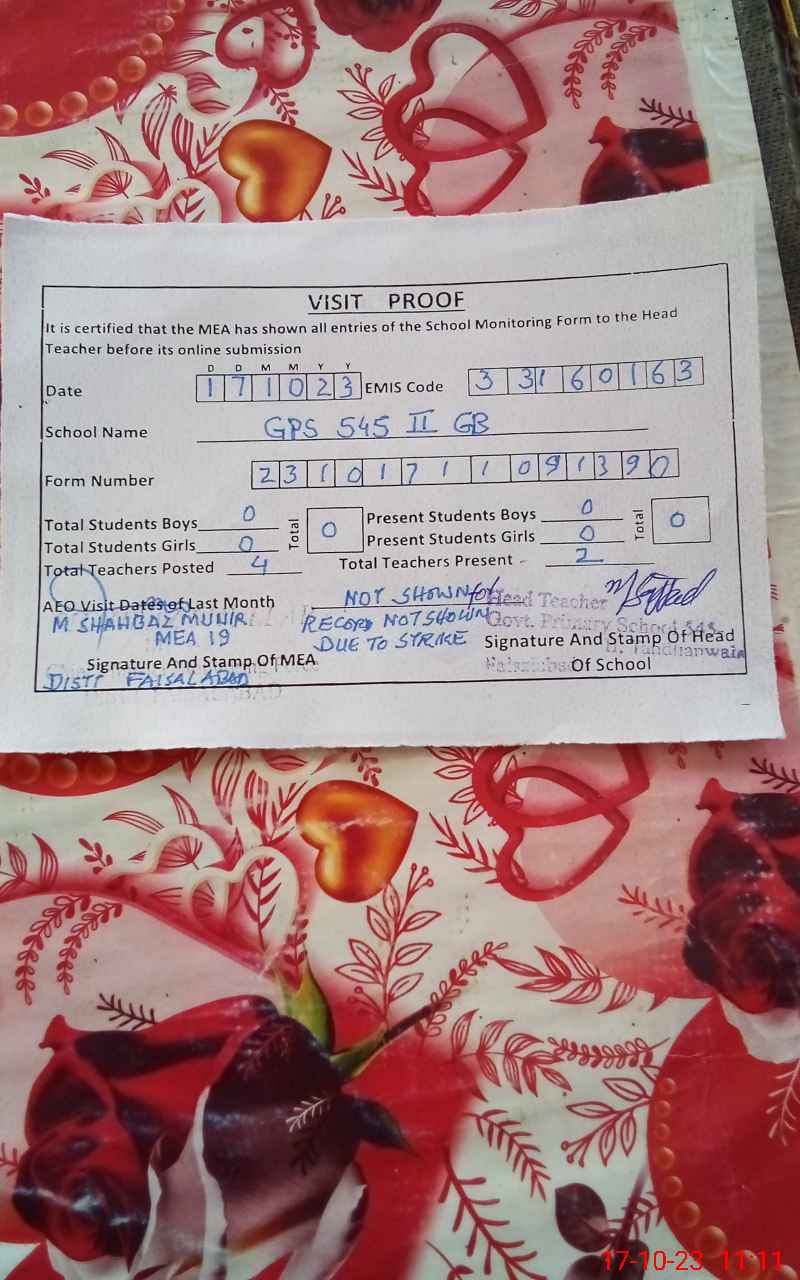 VISIT PROOF
It is certified that the MEA has shown all entries of the School Monitoring Form to the Head
Teacher before its online submission
D D M M Y Y
Date 1 7 1 0 2 3 EMIS Code 3 3 1 6 0 1 6 3
School Name GPS 545 II GB
Form Number 2 3 1 0 1 7 1 1 0 9 1 3 9 0
Total Students Boys 0 Total 0 Present Students Boys 0 Total 0
Total Students Girls 0 Present Students Girls 0
Total Teachers Posted 4 Total Teachers Present 2
AEO Visit Dates of Last Month NOT SHOWN
Head Teacher
M SHAHBAZ MUNIR RECORD NOT SHOWN Govt. Primary School 545
MEA 19 DUE TO STRIKE Signature And Stamp Of Head
Signature And Stamp Of MEA Of School
DISTT FAISALABAD
17-10-23 11:11